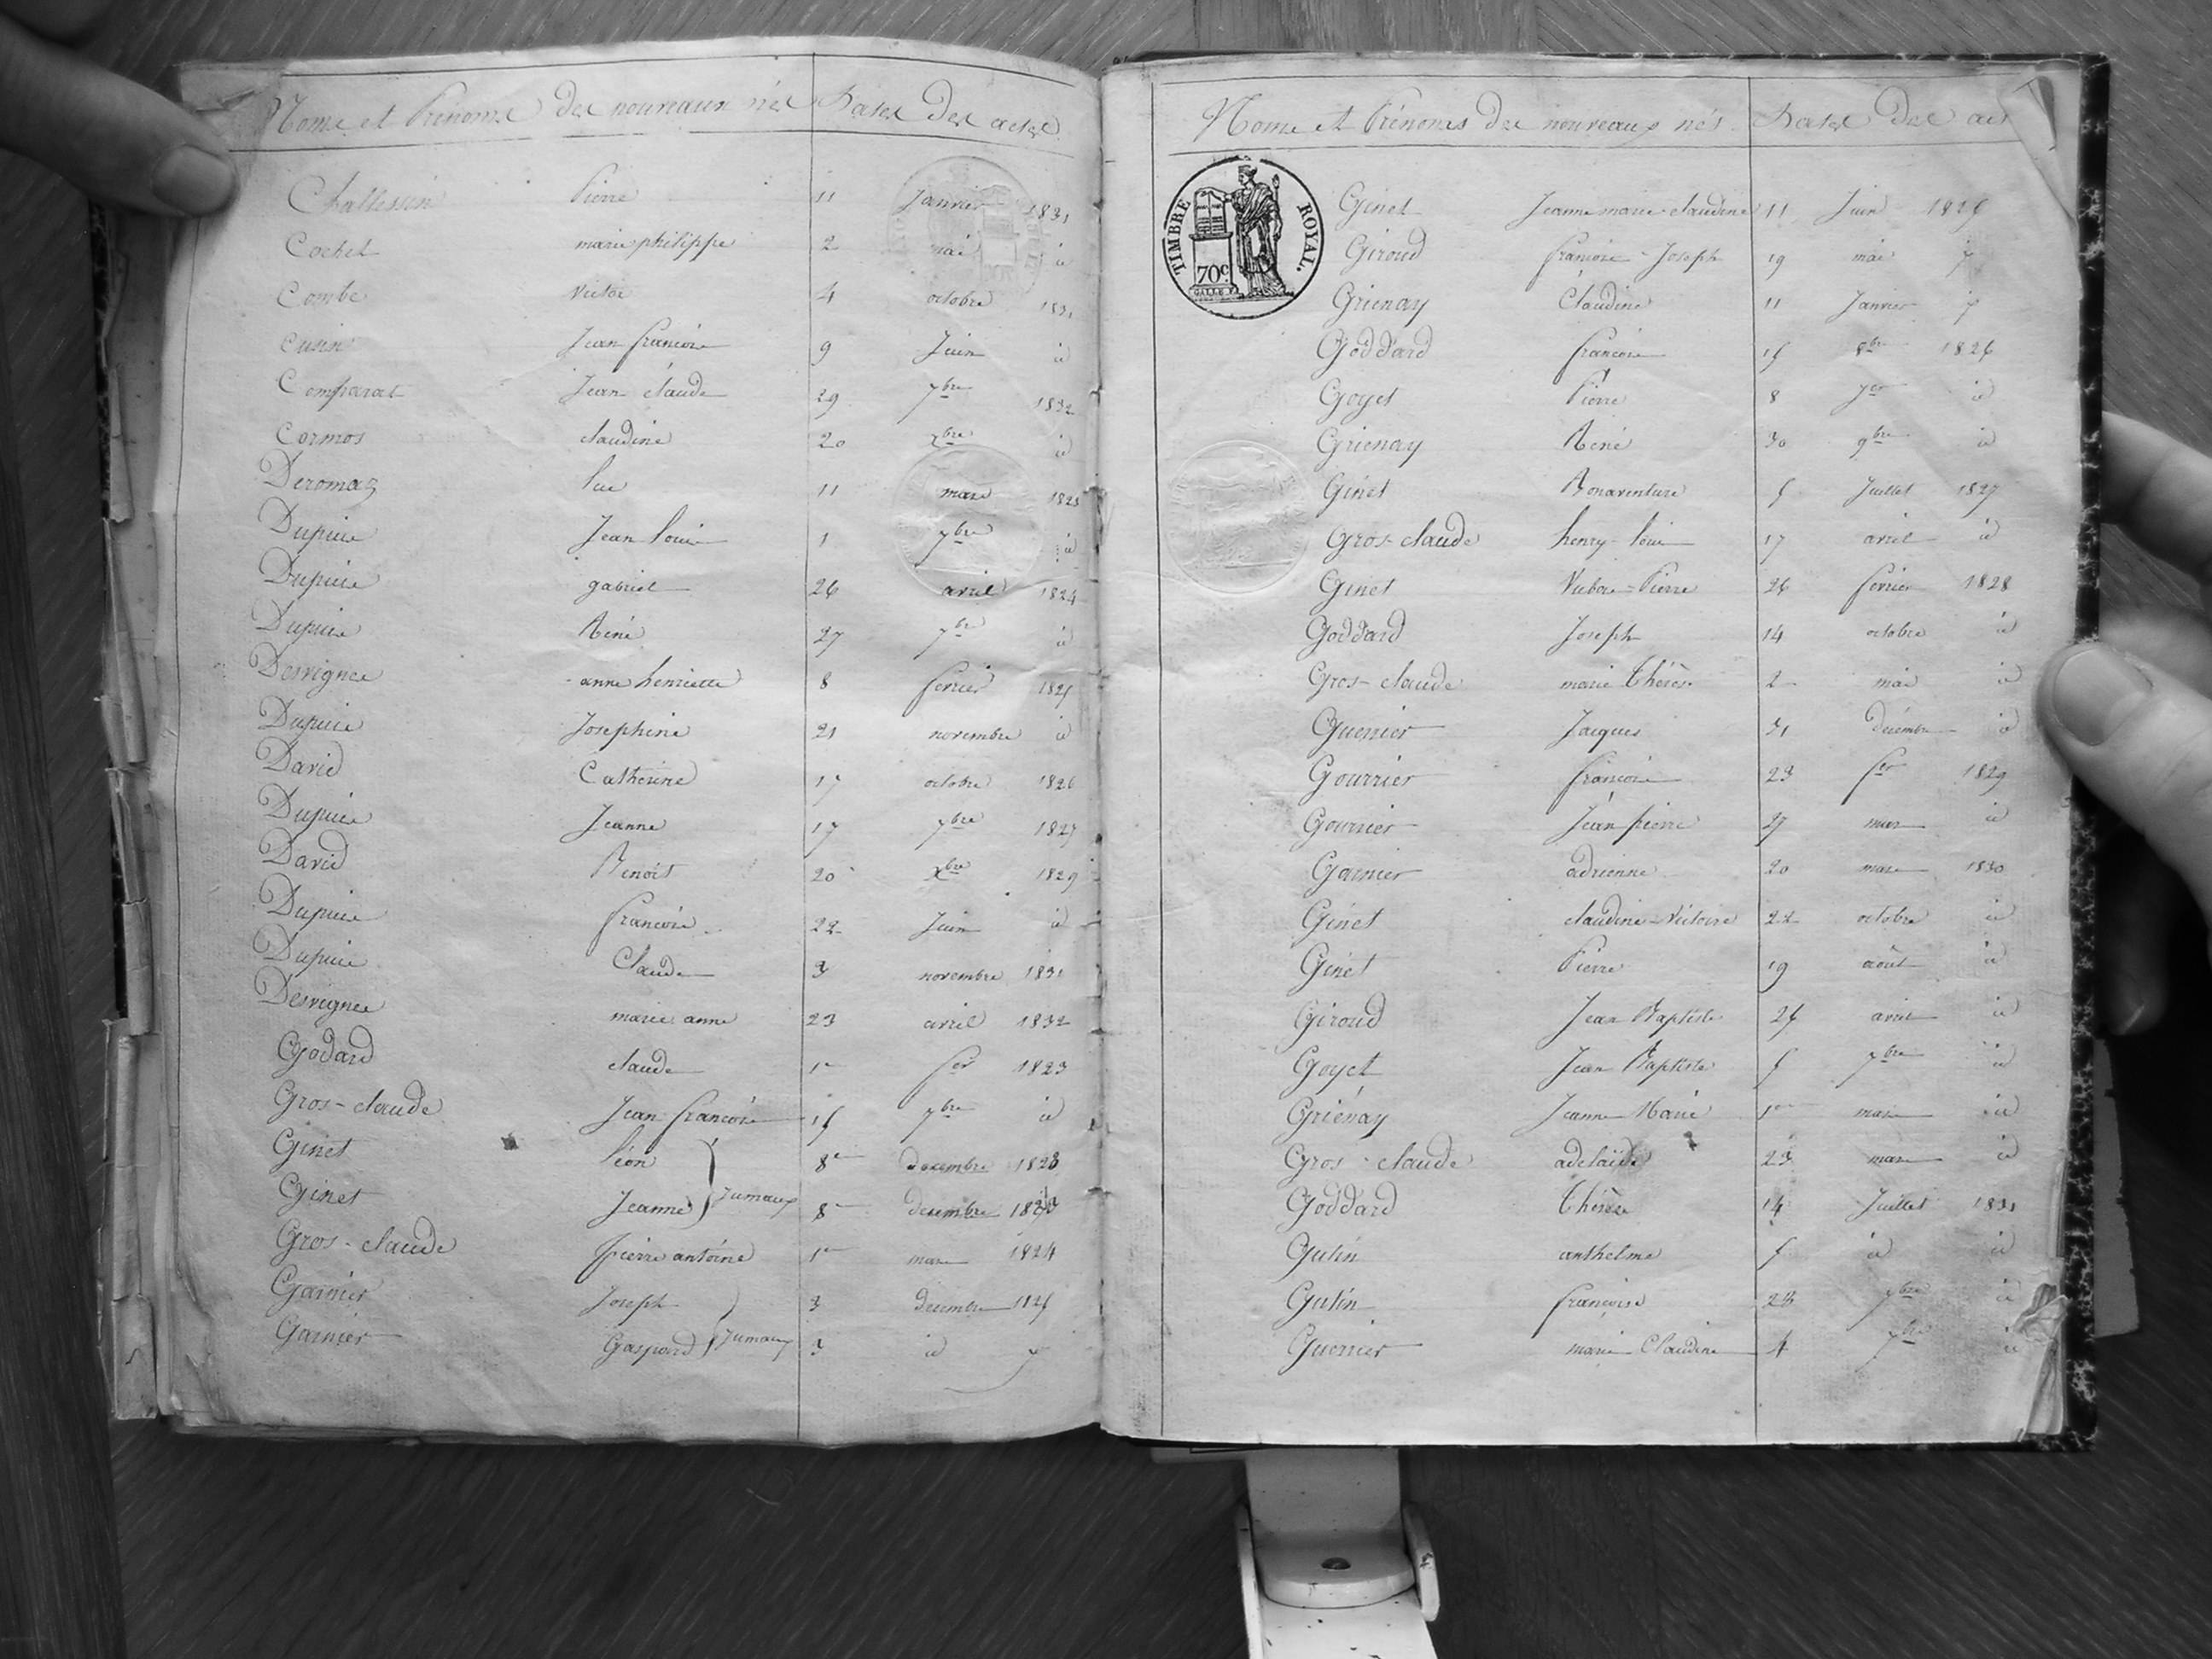 Noms et Prénoms des nouveaux nés Dates des actes
Challessin Pierre 11 Janvier 1831
Cochet marie philippe 2 mai id
Combe Victor 4 octobre 1831
Cusin Jean françois 9 Juin id
Comparat Jean claude 29 7bre 1832
Cormos claudine 20 xbre id
Deromaz luc 11 mars 1823
Dupuis Jean louis 1 7bre id
Dupuis gabriel 26 avril 1824
Dupuis Réné 27 7bre id
Desvignes anne henriette 8 fevrier 1825
Dupuis Josephine 21 novembre id
David Catherine 17 octobre 1826
Dupuis Jeanne 17 7bre 1827
David Benoit 20 xbre 1829
Dupuis françois 22 Juin id
Dupuis Claude 3 novembre 1831
Desvignes marie anne 23 avril 1832
Godard claude 1er fer 1823
Gros-claude Jean françois 15 7bre id
Ginet léon 8 decembre 1823
Ginet Jeanne Jumaux 8 decembre
Gros-claude pierre antoine 1er mars 1824
Garnier Joseph 3 decembre 1825
Garnier Gaspard Jumaux 3 id
Noms et Prénoms des nouveaux nés Dates des act
TIMBRE ROYAL.
70c.
Ginet Jeanne marie claudine 11 Juin
Giroud françois-Joseph 19 mai
Grienay Claudine 11 Janvier
Goddard françois 15 8bre 1826
Goyet Pierre 8 id
Grienay Réné 30 9bre id
Ginet Bonaventure 5 Juillet 1827
Gros-claude henry-louis 17 avril id
Ginet Victor=Pierre 26 fevrier 1828
Goddard Joseph 14 octobre id
Gros-claude marie Thérèse 2 mai id
Guerrier Jacques 31 décembre id
Gourrier françois 23 fer 1829
Gourrier Jean pierre 27 mars id
Garnier adrienne 20 mars 1830
Ginet claudine-Victoire 22 octobre id
Ginet Pierre 19 août id
Giroud Jean Baptiste 25 avril id
Goyet Jean Baptiste 5 7bre id
Griénay Jeanne Marie 1er mars id
Gros-claude adelaïde 23 mars id
Goddard Thérèse 14 Juillet 1831
Gutin anthelme 5 id id
Gutin françoise 28 7bre id
Guerrier marie Claudine 4 7bre id